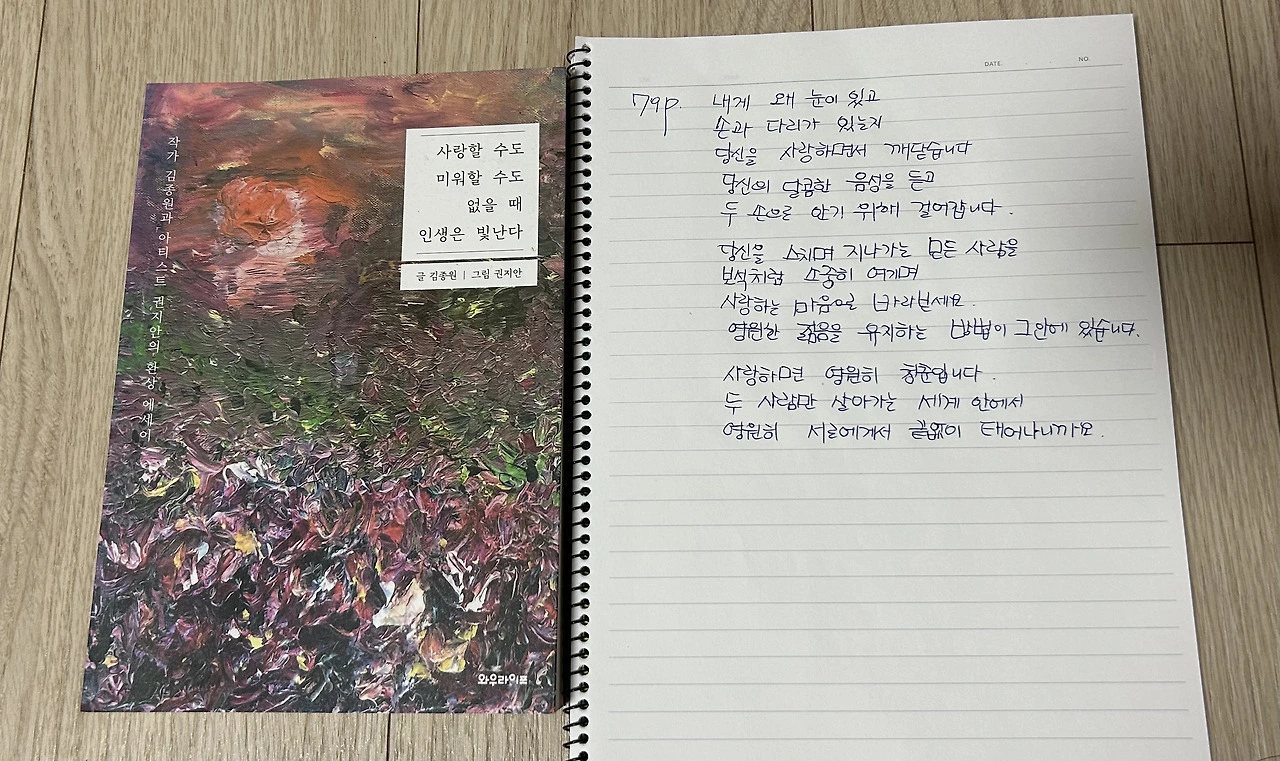 작가 김종원과 아티스트 권지안의 환상 에세이
사랑할 수도
미워할 수도
없을 때
인생은 빛난다
글 김종원 | 그림 권지안
와우라이프
DATE. NO.
79p. 내게 왜 눈이 있고
손과 다리가 있는지
당신을 사랑하면서 깨닫습니다
당신의 달콤한 음성을 듣고
두 손으로 안기 위해 걸어갑니다.
당신을 스치며 지나가는 모든 사람을
보석처럼 소중히 여기며
사랑하는 마음으로 바라보세요.
영원한 젊음을 유지하는 방법이 그 안에 있습니다.
사랑하면 영원히 청춘입니다.
두 사람만 살아가는 세계 안에서
영원히 서로에게서 끝없이 태어나니까요.